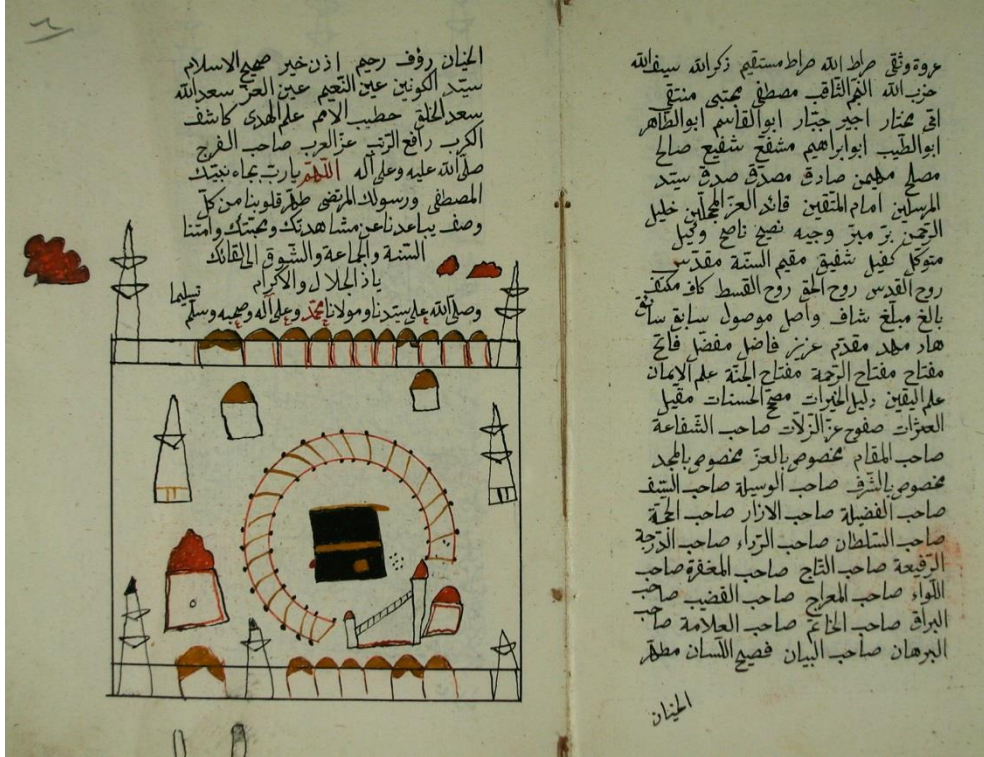 عروة وثقى صراط الله صراط مستقيم ذكر الله سيف الله
حزب الله النجم الثاقب مصطفى مجتبى منتقى
امّى مختار اجير جبّار ابو القاسم ابو الطاهر
ابو الطيّب ابو ابراهيم مشفّع شفيع صالح
مصلح مهيمن صادق مصدّق صدق سيّد
المرسلين امام المتّقين قائد الغرّ المحجّلين خليل
الرحمن برّ مبرّ وجيه نصيح ناصح وكيل
متوكّل كفيل شفيق مقيم السنّة مقدّس
روح القدس روح الحق روح القسط كاف مكتف
بالغ مبلّغ شاف واصل موصول سابق سائق
هاد مهد مقدّم عزيز فاضل مفضّل فاتح
مفتاح مفتاح الرحمة مفتاح الجنّة علم الايمان
علم اليقين دليل الخيرات مصحّح الحسنات مقيل
العثرات صفوح عن الزلّات صاحب الشّفاعة
صاحب المقام مخصوص بالعزّ مخصوص بالمجد
مخصوص بالشّرف صاحب الوسيلة صاحب السّيف
صاحب الفضيلة صاحب الازار صاحب الحجّة
صاحب السّلطان صاحب الرّداء صاحب الدّرجة
الرّفيعة صاحب التّاج صاحب المغفرة صاحب
اللّواء صاحب المعراج صاحب القضيب صاحب
البراق صاحب الخاتم صاحب العلامة صاحب
البرهان صاحب البيان فصيح اللّسان مطهّر
الجنان
٦
الجنان رؤف رحيم اذن خير صحيح الاسلام
سيّد الكونين عين النّعيم عين العزّ سعد الله
سعد الخلق خطيب الامم علم الهدى كاشف
الكرب رافع الرّتب عزّ العرب صاحب الفرج
صلّى الله عليه وعلى آله اللّهمّ يا ربّ بجاه نبيّك
المصطفى ورسولك المرتضى طهّر قلوبنا من كلّ
وصف يباعدنا عن مشاهدتك ومحبّتك وامتنا
السنّة والجماعة والشّوق الى لقائك
ياذ الجلال والاكرام
وصلّى الله على سيّدنا ومولانا محمّد وعلى آله وصحبه وسلّم تسليما